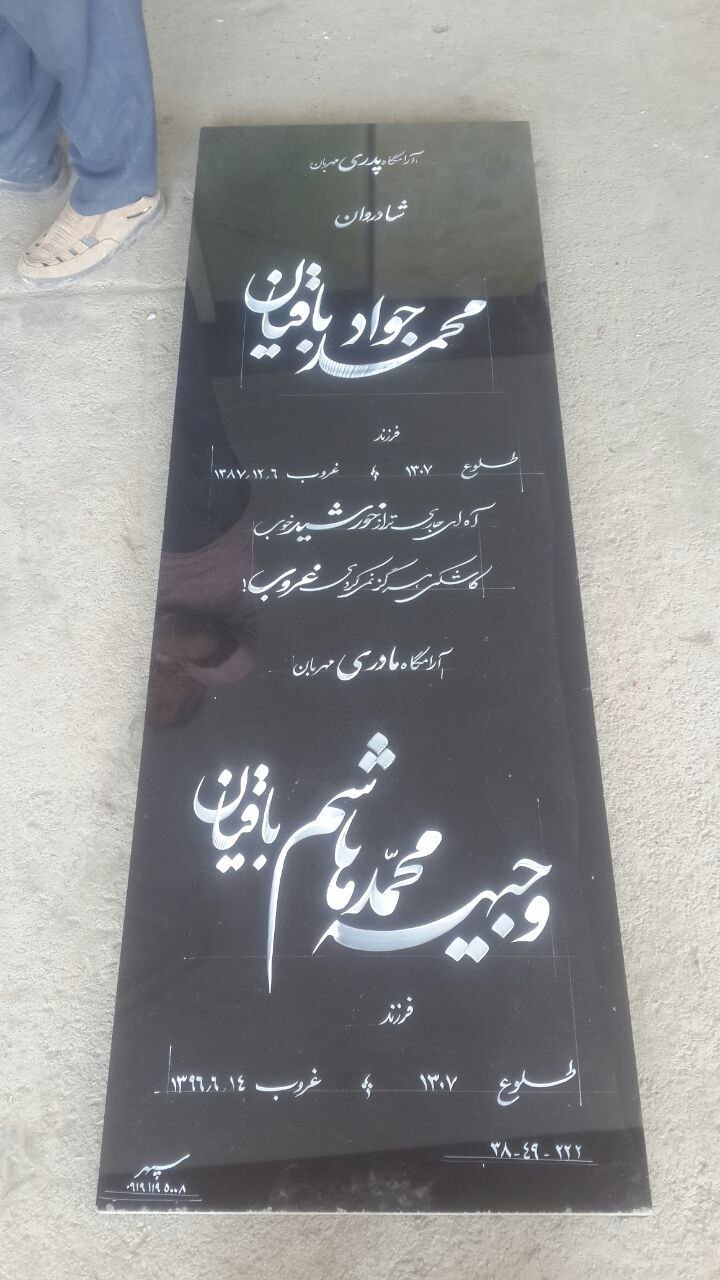 آرامگاه پدری مهربان
شادروان
محمد جواد باقیان
فرزند
طلوع ۱۳۰۷ غروب ۱۳۸۷٫۱۲٫۶
آه ای جاری‌تر از خورشید خوب
کاشکی هرگز نمی‌کردی غروب!
آرامگاه مادری مهربان
وجیهه محمّدهاشم باقیان
فرزند
طلوع ۱۳۰۷ غروب ۱۳۹۶٫۶٫۱٤
۳۸-٤۹-۲۲۲
سپهر
۰۹۱۹ ۱۱۹ ۵۰۰۸